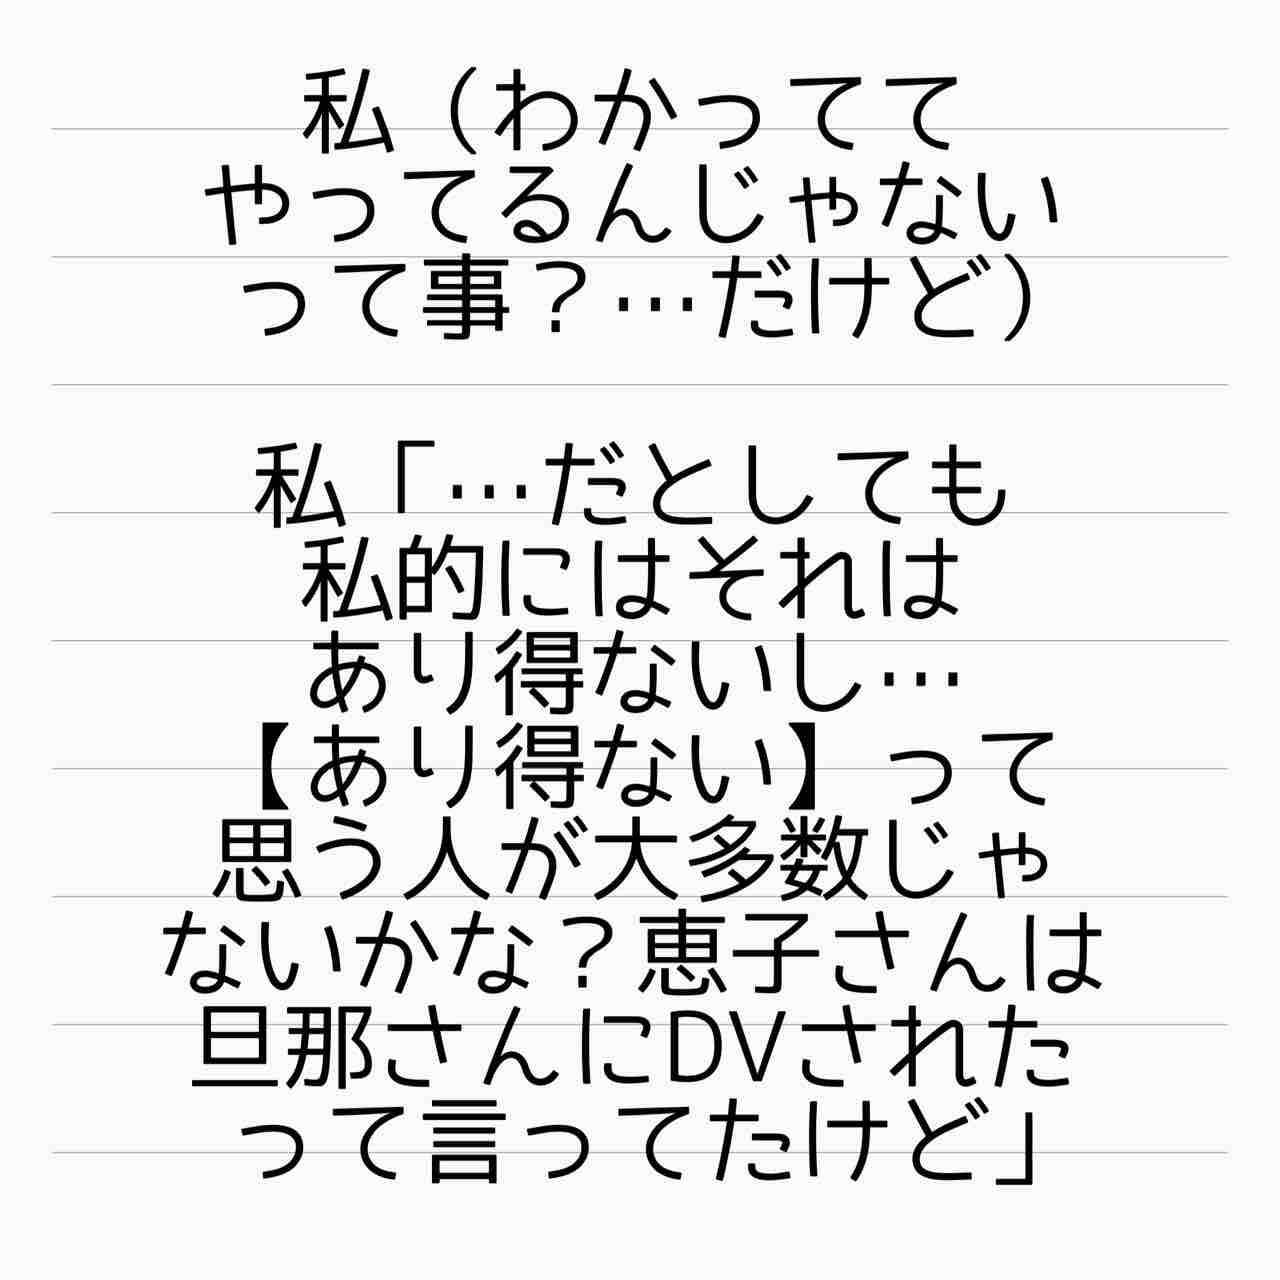 私（わかってて
やってるんじゃない
って事？…だけど）
私「…だとしても
私的にはそれは
あり得ないし…
【あり得ない】って
思う人が大多数じゃ
ないかな？恵子さんは
旦那さんにDVされた
って言ってたけど」